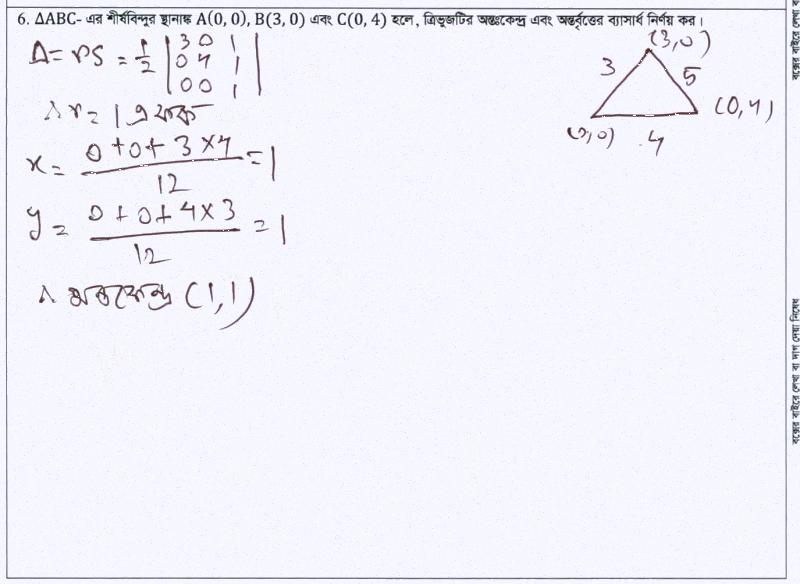 6. ΔABC- এর শীর্ষবিন্দুর স্থানাঙ্ক A(0, 0), B(3, 0) এবং C(0, 4) হলে, ত্রিভুজটির অন্তঃকেন্দ্র এবং অন্তর্বৃত্তের ব্যাসার্ধ নির্ণয় কর।
Δ= rs = 1/2 | 3 0 1
0 4 1
0 0 1 |
∴ r = 1 একক
x = (0+0+ 3×4)/12 = 1
y = (0+0+ 4×3)/12 = 1
∴ অন্তকেন্দ্র (1,1)
(3,0)
3 5
(0,0) 4 (0,4)
বক্সের বাইরে লেখা বা দাগ দেয়া নিষেধ